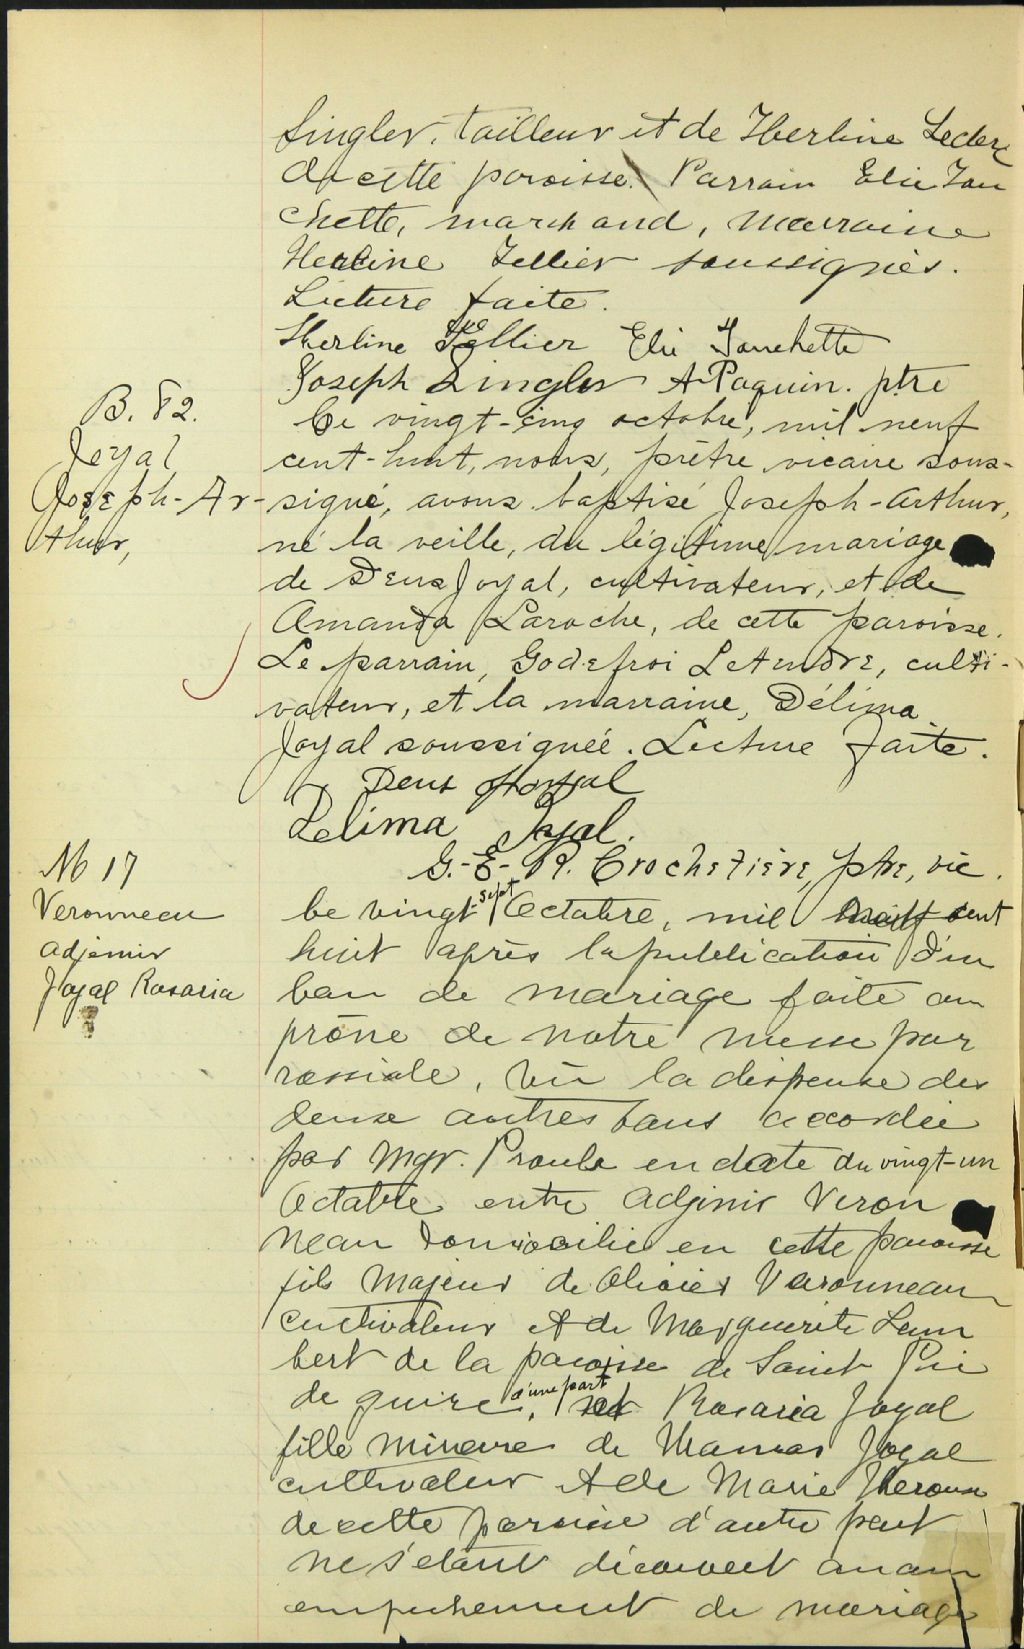 Singler, tailleur et de Herline Leclerc
de cette paroisse. Parrain Elie Tou
chette, marchand, Marraine
Herline Tellier soussignés.
Lecture faite.
Herline Tellier Elie Touchette
Joseph Singler A Paquin. ptre
B. 82.
Joyal
Joseph-Ar-
thur,
Ce vingt-cinq octobre, mil neuf
cent-huit, nous, prêtre vicaire sous-
signé, avons baptisé Joseph-Arthur,
né la veille, du légitime mariage
de Deus Joyal, cultivateur, et de
Amanda Laroche, de cette paroisse.
Le parrain, Godefroi Letendre, culti-
vateur, et la marraine, Délima
Joyal soussignée. Lecture faite.
Deus Joyal
Delima Joyal.
G.-E.-R. Crochetière, ptre, vic.
M 17
Veronneau
Adjenir
Joyal Rosaria
Ce vingt sept Octobre, mil neuf cent
huit après la publication d'un
ban de mariage faite au
prône de notre messe par
roissiale, vu la dispense des
deux autres bans accordée
par Mgr. Proulx en date du vingt-un
Octobre entre Adjinir Veron
neau domicilié en cette paroisse
fils Majeur de Olivier Veronneau
cultivateur et de Marguerite Lam
bert de la paroisse de Saint Pie
de guire, d'une part et Rosaria Joyal
fille mineure de Joyal
cultivateur et de Marie
de cette paroisse d'autre part
ne s'étant découvert aucun
empechement de mariage